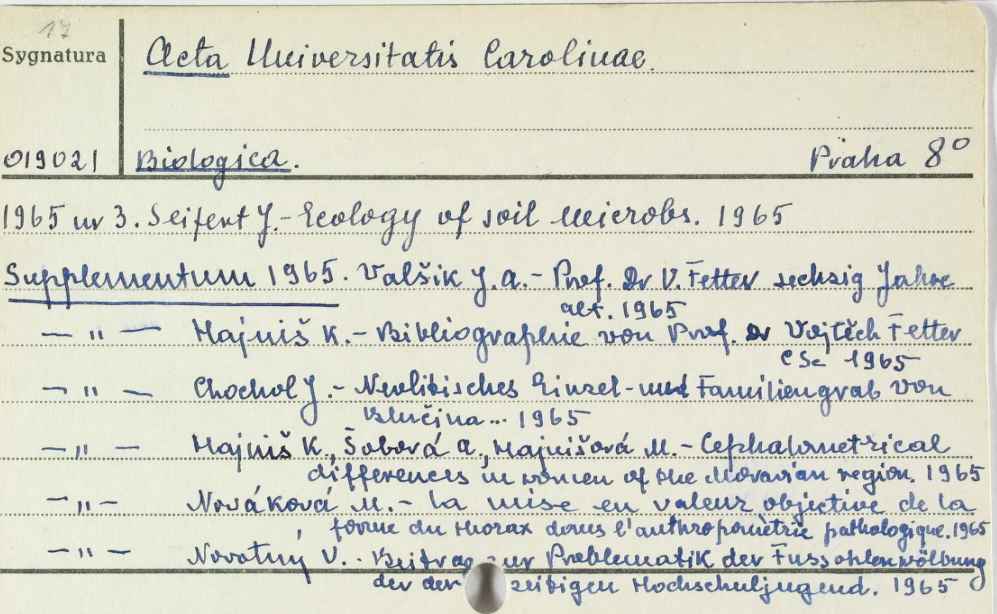 17
Sygnatura
Acta Universitatis Carolinae.
019021 Biologica. Praha 8°
1965 nr 3. Seifert J. - Ecology of soil microbs. 1965
Supplementum 1965. Valšik J. A. - Prof. Dr V. Fetter sechsig Jahre
alt. 1965
— " — Hajniš K. - Bibliographie von Prof. Dr Vojtěch Fetter
CSc 1965
— " — Chochol J. - Neolitisches Einzel- und Familiengrab von
Blučina... 1965
— " — Hajniš K., Šobová A., Hajnišová M. - Cephalometrical
differences in women of the Moravian region. 1965
— " — Nováková M. - La mise en valeur objective de la
forme du thorax dans l'anthropométrie pathologique. 1965
— " — Novotný V. - Beitrag zur Problematik der Fussohlenwölbung
der der zeitigen Hochschuljugend. 1965